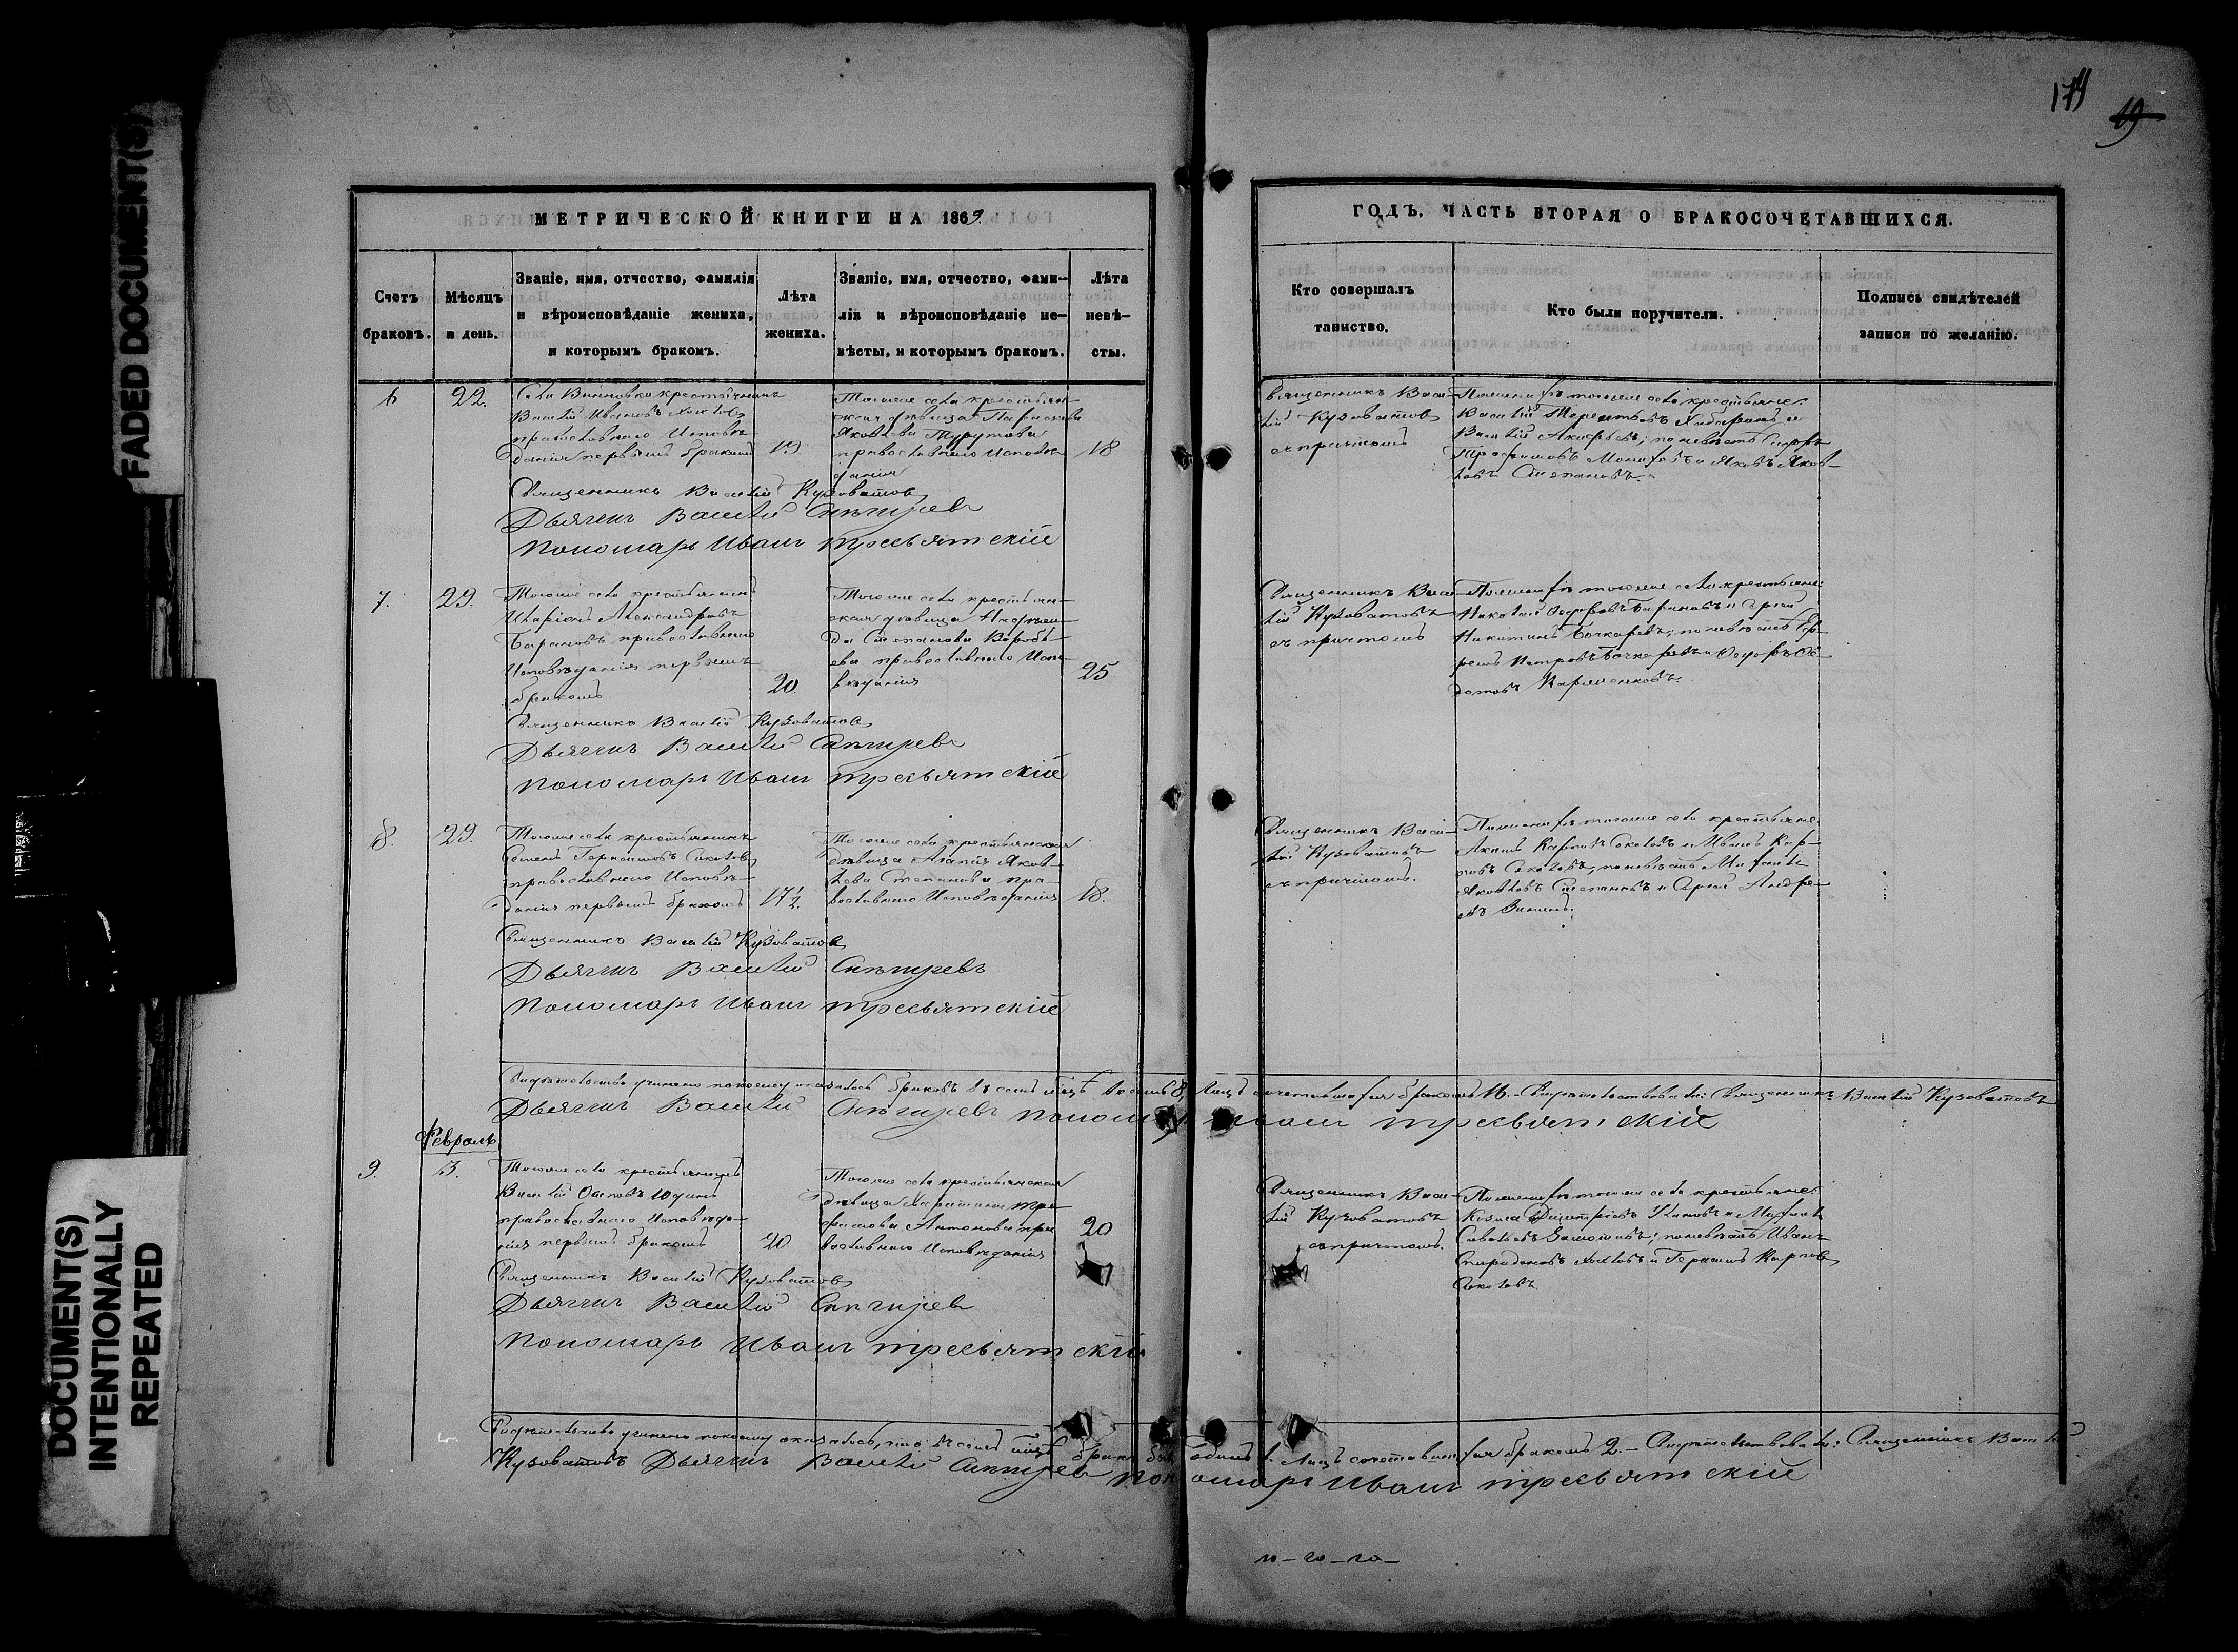 174
19
FADED DOCUMENT(S)
DOCUMENT(S)
INTENTIONALLY
REPEATED
МЕТРИЧЕСКОЙ КНИГИ НА 1869
ГОДЪ. ЧАСТЬ ВТОРАЯ О БРАКОСОЧЕТАВШИХСЯ.
Счетъ
браковъ.
Мѣсяцъ
и день.
Званіе, имя, отчество, фамилія
и вѣроисповѣданіе жениха,
и которымъ бракомъ.
Лѣта
жениха.
Званіе, имя, отчество, фами-
лія и вѣроисповѣданіе не-
вѣсты, и которымъ бракомъ.
Лѣта
невѣ-
сты.
Кто совершалъ
таинство.
Кто были поручители.
Подпись свидѣтелей
записи по желанію.
6
22.
Села Винновки крестьянинъ
Василій Ивановъ
православнаго Исповѣ-
данія первымъ бракомъ
19
Тогоже села крестьян-
ская дѣвица
Яковлева
православнаго Исповѣ-
данія
18
Священникъ Васи-
лій Кузоватовъ
съ причтомъ
По женихѣ тогоже села крестьяне:
Василій Терентьевъ и
Василій по невѣстѣ
Трофимовъ и Яковъ Яков-
левъ Степановъ.
Священникъ Василій Кузоватовъ
Дьячекъ Василій Снѣгиревъ
Пономарь Иванъ Тресвятскій
7.
29.
Тогоже села крестьянинъ
Иларіонъ Александровъ
Барановъ православнаго
Исповѣданія первымъ
бракомъ
20
Тогоже села крестьян-
ская дѣвица
Степанова Воробь-
ева православнаго Испо-
вѣданія
25
Священникъ Васи-
лій Кузоватовъ
съ причтомъ
По женихѣ тогоже села крестьяне:
Николай Ѳедоровъ Барановъ и Сергѣй
Никитинъ Бочкаревъ; по невѣстѣ
Петровъ Бочкаревъ и Ѳедоръ
Священникъ Василій Кузоватовъ
Дьячекъ Василій Снѣгиревъ
Пономарь Иванъ Тресвятскій
8.
29.
Тогоже села крестьянинъ
Семенъ Соколовъ
православнаго Исповѣ-
данія первымъ бракомъ
17½
Тогоже села крестьянская
дѣвица Яков-
лева Степанова пра-
вославнаго Исповѣданія
18.
Священникъ Васи-
лій Кузоватовъ
съ причтомъ.
По женихѣ тогоже села крестьяне:
Карповъ Соколовъ и Иванъ Кар-
повъ Соколовъ, по невѣстѣ Михаилъ
Яковлевъ Степановъ и Сергѣй Андре-
евъ
Священникъ Василій Кузоватовъ
Дьячекъ Василій Снѣгиревъ
Пономарь Иванъ Тресвятскій
Свидѣтельство учинено по коему оказалось браковъ въ семъ мѣсяцѣ восемь 8, Лицъ сочетавшихся бракомъ 16. – Свидѣтельствовали: Священникъ Василій Кузоватовъ
Дьячекъ Василій Снѣгиревъ Пономарь Иванъ Тресвятскій
Февраль
9.
3.
Тогоже села крестьянинъ
Василій Осиповъ Юдинъ
православнаго Исповѣда-
нія первымъ бракомъ
20
Тогоже села крестьянская
дѣвица Тро-
фимова Антонова пра-
вославнаго Исповѣданія
20
Священникъ Васи-
лій Кузоватовъ
съ причтомъ.
По женихѣ тогоже села крестьяне:
Козма Димитріевъ и Михаилъ
Савельевъ по невѣстѣ Иванъ
Спиридоновъ и Германъ Карповъ
Соколовъ
Священникъ Василій Кузоватовъ
Дьячекъ Василій Снѣгиревъ
Пономарь Иванъ Тресвятскій
Свидѣтельство учинено по коему оказалось, что въ семъ бракъ былъ одинъ 1. Лицъ сочетавшихся бракомъ 2. – Свидѣтельствовали: Священникъ Василій
Кузоватовъ Дьячекъ Василій Снѣгиревъ Пономарь Иванъ Тресвятскій